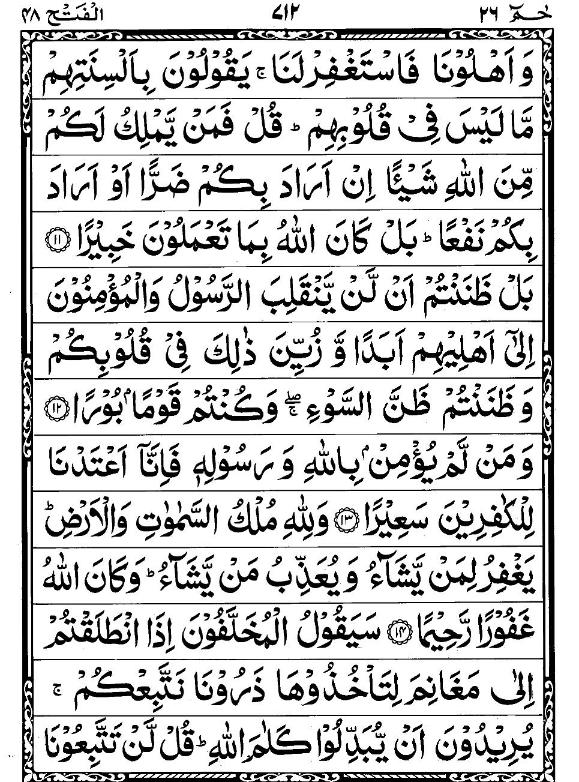 حٰمٓ ٢٦ ٧١٢ الْفَتْح ٤٨
وَ اَهْلُوْنَا فَاسْتَغْفِرْ لَنَا ۚ يَقُوْلُوْنَ بِاَلْسِنَتِهِمْ
مَّا لَيْسَ فِيْ قُلُوْبِهِمْ ؕ قُلْ فَمَنْ يَّمْلِكُ لَكُمْ
مِّنَ اللّٰهِ شَيْـًٔا اِنْ اَرَادَ بِكُمْ ضَرًّا اَوْ اَرَادَ
بِكُمْ نَفْعًا ؕ بَلْ كَانَ اللّٰهُ بِمَا تَعْمَلُوْنَ خَبِيْرًا ۝١١
بَلْ ظَنَنْتُمْ اَنْ لَّنْ يَّنْقَلِبَ الرَّسُوْلُ وَالْمُؤْمِنُوْنَ
اِلٰٓى اَهْلِيْهِمْ اَبَدًا وَّ زُيِّنَ ذٰلِكَ فِيْ قُلُوْبِكُمْ
وَ ظَنَنْتُمْ ظَنَّ السَّوْءِ ۖۚ وَكُنْتُمْ قَوْمًۢا بُوْرًا ۝١٢
وَ مَنْ لَّمْ يُؤْمِنْۢ بِاللّٰهِ وَ رَسُوْلِهٖ فَاِنَّاۤ اَعْتَدْنَا
لِلْكٰفِرِيْنَ سَعِيْرًا ۝١٣ وَلِلّٰهِ مُلْكُ السَّمٰوٰتِ وَالْاَرْضِ ؕ
يَغْفِرُ لِمَنْ يَّشَآءُ وَ يُعَذِّبُ مَنْ يَّشَآءُ ؕ وَكَانَ اللّٰهُ
غَفُوْرًا رَّحِيْمًا ۝١٤ سَيَقُوْلُ الْمُخَلَّفُوْنَ اِذَا انْطَلَقْتُمْ
اِلٰى مَغَانِمَ لِتَاْخُذُوْهَا ذَرُوْنَا نَتَّبِعْكُمْ ۚ
يُرِيْدُوْنَ اَنْ يُّبَدِّلُوْا كَلٰمَ اللّٰهِ ؕ قُلْ لَّنْ تَتَّبِعُوْنَا